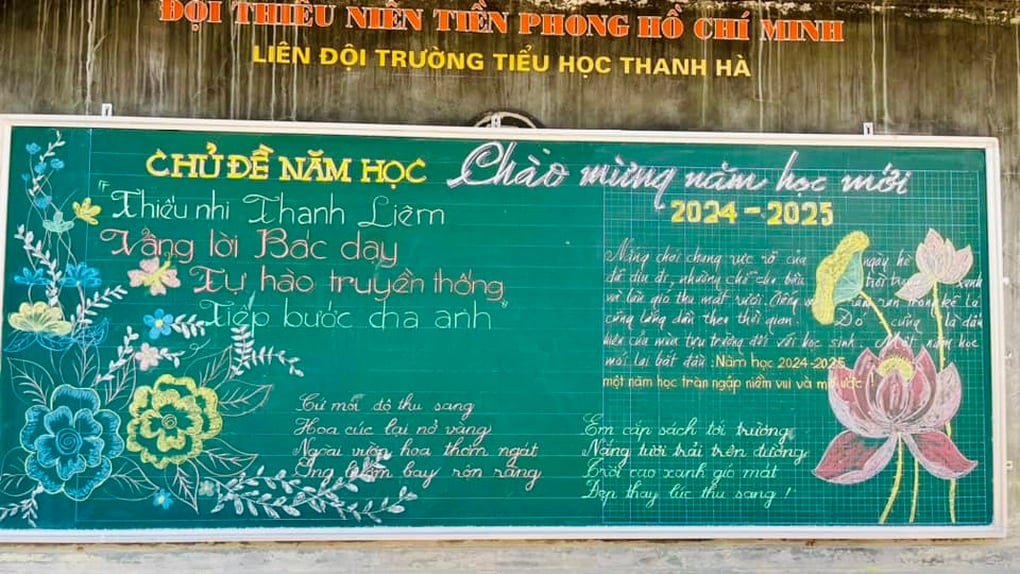 ĐỘI THIẾU NIÊN TIỀN PHONG HỒ CHÍ MINH
LIÊN ĐỘI TRƯỜNG TIỂU HỌC THANH HÀ
CHỦ ĐỀ NĂM HỌC
"Thiếu nhi Thanh Liêm
Vâng lời Bác dạy
Tự hào truyền thống
Tiếp bước cha anh"
Cứ mỗi độ thu sang
Hoa cúc lại nở vàng
Ngoài vườn hoa thơm ngát
Ong bướm bay rộn ràng
Chào mừng năm học mới
2024-2025
Nắng chói chang rực rỡ của ngày hè
đã dịu đi, nhường chỗ cho bầu trời xanh
và làn gió thu mát rượi. Tiếng ve râm ran trong kẽ lá
cũng lắng dần theo thời gian. Đó cũng là dấu
hiệu của mùa tựu trường đối với học sinh. Một năm học
mới lại bắt đầu: Năm học 2024-2025
một năm học tràn ngập niềm vui và mơ ước!
Em cắp sách tới trường
Nắng tươi trải trên đường
Trời cao xanh gió mát
Đẹp thay lúc thu sang!